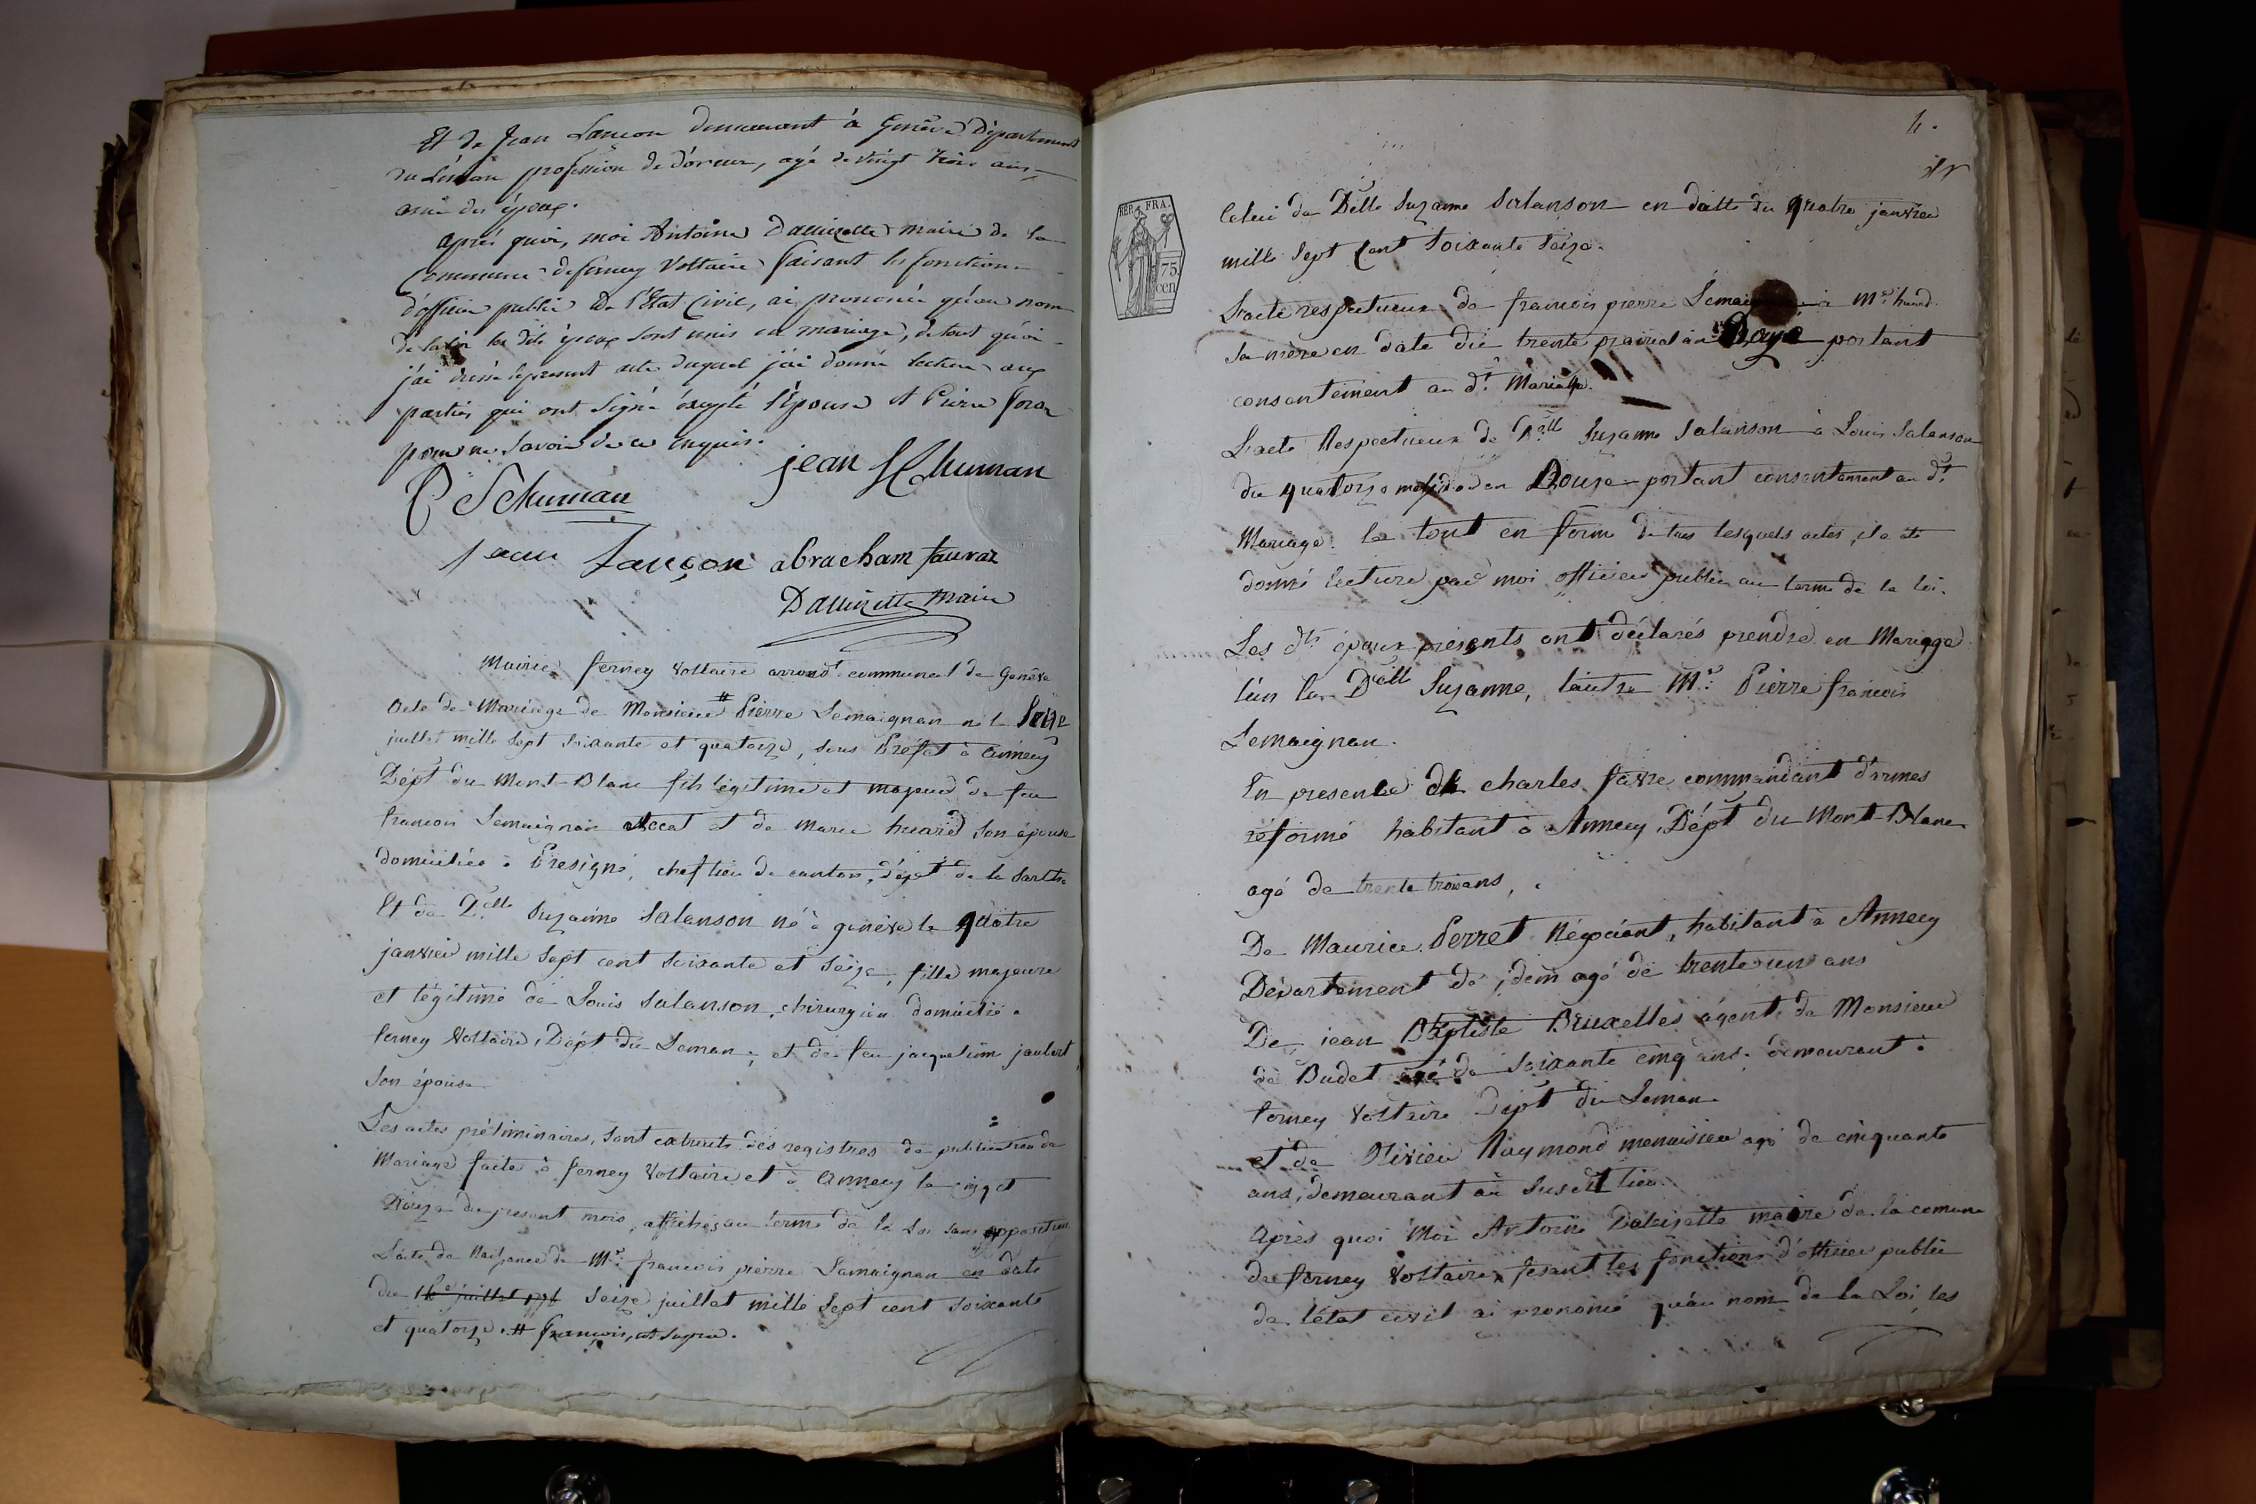 Et de Jean Lançon demeurant à Genève Département
du Léman profession de doreur, agé de vingt trois ans,
amis des époux.
après quoi, moi Antoine Dallizette maire de la
Commune de ferney Voltaire faisant les fonctions
d'officier public de l'Etat Civil, ai prononcé qu'au nom
de la loi les dits époux sont unis en mariage, de tout quoi
j'ai dressé le present acte duquel j'ai donné lecture aux
parties qui ont signé excepté l'épouse et Pierre
pour ne savoir de ce enquis.
jean Schuman
P Schuman
jean Lançon abracham fauraz
Dallizette maire
Mairie ferney Voltaire arrond.t communal de Genève
Acte de Mariage de Monsieur # Pierre Lemaignan né le Seize
juillet mille sept soixante et quatorze, sous Préfet à Annecy
Dépt du Mont-Blanc fils légitime et majeur de feu
francois Lemaignan et de Marie huard son épouse
domiciliée à Presigné, chef lieu de canton, dépt de la Sarthe
Et de D.elle Suzanne Salanson né à genève le quatre
janvier mille sept cent soixante et seize, fille majeure
et légitime de Louis Salanson, chirurgien domicilié a
ferney Voltaire, Dépt du Leman, et de feu jaquelim jaubert
son épouse
Les actes préliminaires, sont extraits des registres de publication de
Mariage faite à ferney Voltaire et à Annecy le cinq et
Douze du present mois, affichés au terme de la Loi sans opposition
L'acte de Naissance de M.r francois pierre Lemaignan en date
du 16e juillet 1774 Seize juillet mille sept cent soixante
et quatorze. # francois, ut supra.
4.
Celui de Delle Suzanne Salanson en datte du quatre janvier
mille sept cent soixante seize.
REP. FRA.
75
cen
L'acte respectueux de francois pierre à M.e huard
sa mère en date du trente prairial an Doze portant
consentement au d.t Mariage.
L'acte Respectueux de D.elle Suzanne Salanson à Louis Salanson
du quatorze an Douze portant consentement au d.t
Mariage. le tout en forme de tous lesquels actes, il a été
donné lecture par moi officier public au terme de la loi.
Les d.ts époux présents ont déclarés prendre en Mariage
l'un la D.elle Suzanne, l'autre M.r Pierre francois
Lemaignan.
En presence de charles favre commandant d'armes
réformé habitant à Annecy, Dépt du Mont-Blanc
agé de trente trois ans,
De Maurice Perret Négociant, habitant à Annecy
Département de idem agé de trente un ans
De jean Baptiste Bruxelles agent de Monsieur
de Budet agé de soixante cinq ans. demeurant a
ferney Voltaire Dépt du Leman
et de Olivier Raymond menuisier agé de cinquante
ans, demeurant au susdit lieu
Après quoi Moi Antoine Dalizette maire de la comune
de ferney Voltaire, fesant les fonctions d'officier public
de l'état civil ai prononcé qu'au nom de la Loi, les